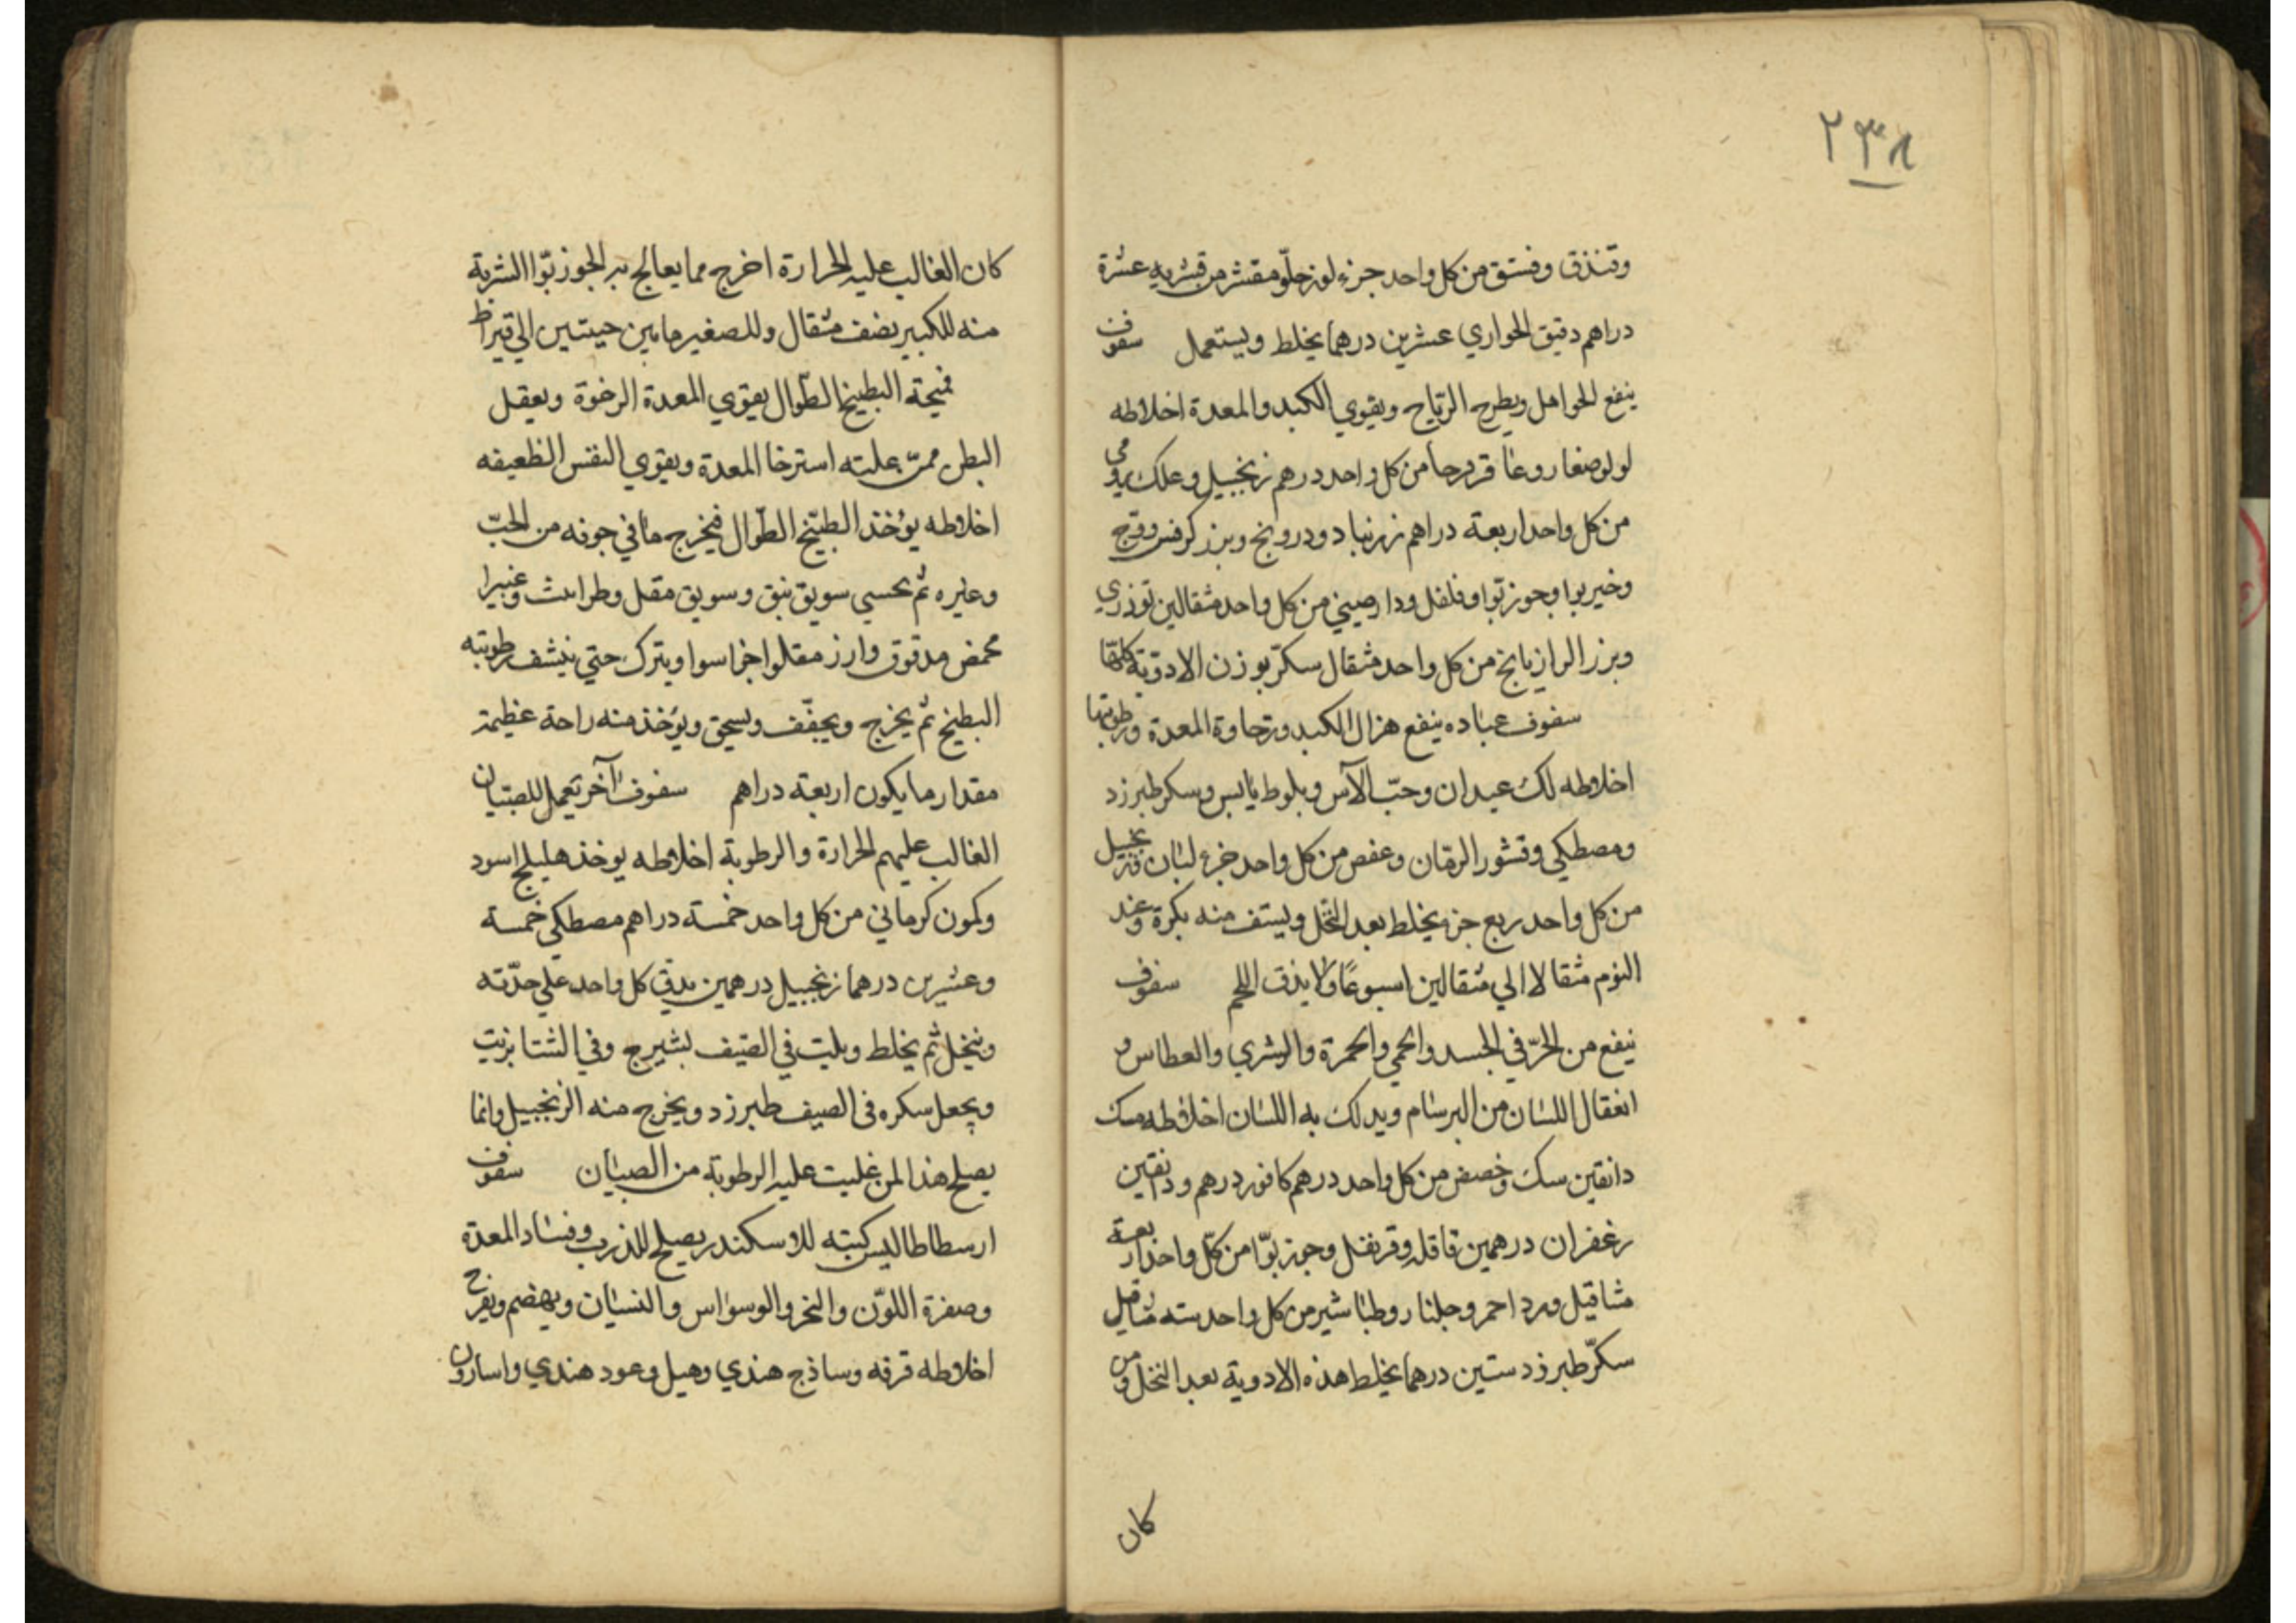 ٢٣٨
وفندق وفستق من كل واحد جزء لوز حلو مقشر من قشريه عشرة
دراهم دقيق الحواري عشرين درهما يخلط ويستعمل سفوف
ينفع الحوامل ويطرح الرياح ويقوي الكبد والمعدة اخلاطه
لولو صغار وعاقرقرحا من كل واحد درهم زنجبيل وعلك رومي
من كل واحد اربعة دراهم زرنباد ودرونج وبزر كرفس ووج
وخيربوا وجوز بوا وفلفل ودارصيني من كل واحد مثقالين توذري
وبزر الرازيانج من كل واحد مثقال سكر بوزن الادوية كلها
سفوف عباده ينفع هزال الكبد ورخاوة المعدة ورطوبتها
اخلاطه لك عيدان وحبّ الآس وبلوط يابس وسكر طبرزد
ومصطكي وقشور الرمان وعفص من كل واحد جزء لبان وزنجبيل
من كل واحد ربع جزء يخلط بعد النخل ويستف منه بكرة وعند
النوم مثقالا الي مثقالين اسبوعًا ولا يذق اللحم سفوف
ينفع من الحرّ في الجسد والحمي والحمرة والشري والعطاس و
انعقال اللسان من البرسام ويدلك به اللسان اخلاطه مسك
دانقين سك وخصص من كل واحد درهم كافور درهم ودانقين
زعفران درهمين قاقله وقرنفل وجوز بوّا من كلّ واحد اربعة
مثاقيل ورد احمر وجلنار وطباشير من كل واحد سته مثاقيل
سكرّ طبرزد ستين درهما يخلط هذه الادوية بعد النخل ومن
كان
كان الغالب عليه الحرارة اخرج مما يعالج به الجوز بوّا الشربة
منه للكبير نصف مثقال وللصغير مابين حبتين الي قيراط
قميحة البطيخ الطوال يقوي المعدة الرخوة ويعقل
البطن ممن علته استرخا المعدة ويقوي النفس الظعيفه
اخلاطه يؤخذ البطيّخ الطوال فيخرج مافي جوفه من الحبّ
وغيره ثم يحسي سويق نبق وسويق مقل وطراثيث وغبيرا
محمض مدقوق وارز مقلو اجزا سوا ويترك حتي ينشف رطوبته
البطيخ ثم يخرج ويجفّف ويسحق ويؤخذ منه راحة عظيمة
مقدار ما يكون اربعة دراهم سفوف آخر تعمل للصبيان
الغالب عليهم الحرارة والرطوبة اخلاطه يوخذ هليلج اسود
وكمون كرماني من كل واحد خمسة دراهم مصطكي خمسة
وعشرين درهما زنجبيل درهمين يدق كل واحد علي حدّته
وينخل ثم يخلط ويلت في الصيف بشيرج وفي الشتا بزيت
ويجعل سكره في الصيف طبرزد ويخرج منه الزنجبيل وانما
يصلح هذا لمن غلبت عليه الرطوبة من الصبيان سفوف
ارسطاطاليس كتبه للاسكندر يصلح للذرب وفساد المعدة
وصفرة اللوّن والبخر والوسواس والنسيان ويهضم ويفرح
اخلاطه قرفه وساذج هندي وهيل وعود هندي واسارون